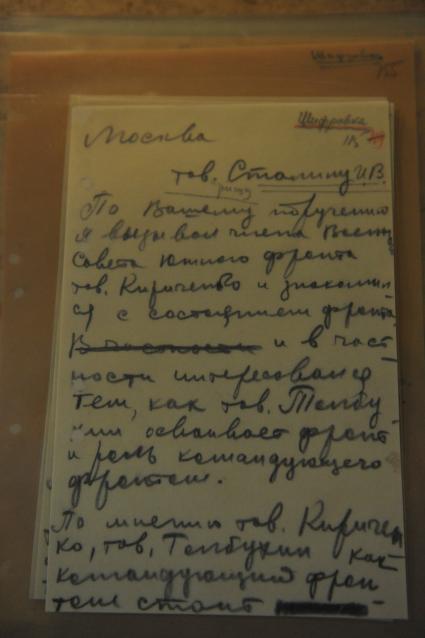 Шифровка
Москва
тов. Сталину И.В.
По Вашему поручению
я вызывал члена Воен
Совета Южного фронта
тов. Кириченко и знакомил
ся с состоянием фронта
В частности и в част-
ности интересовался
тем, как тов. Толбу
хин осваивает фронт
и роль командующего
фронтом.
По мнению тов. Киричен
ко, тов. Толбухин как
командующий фрон
том стоит